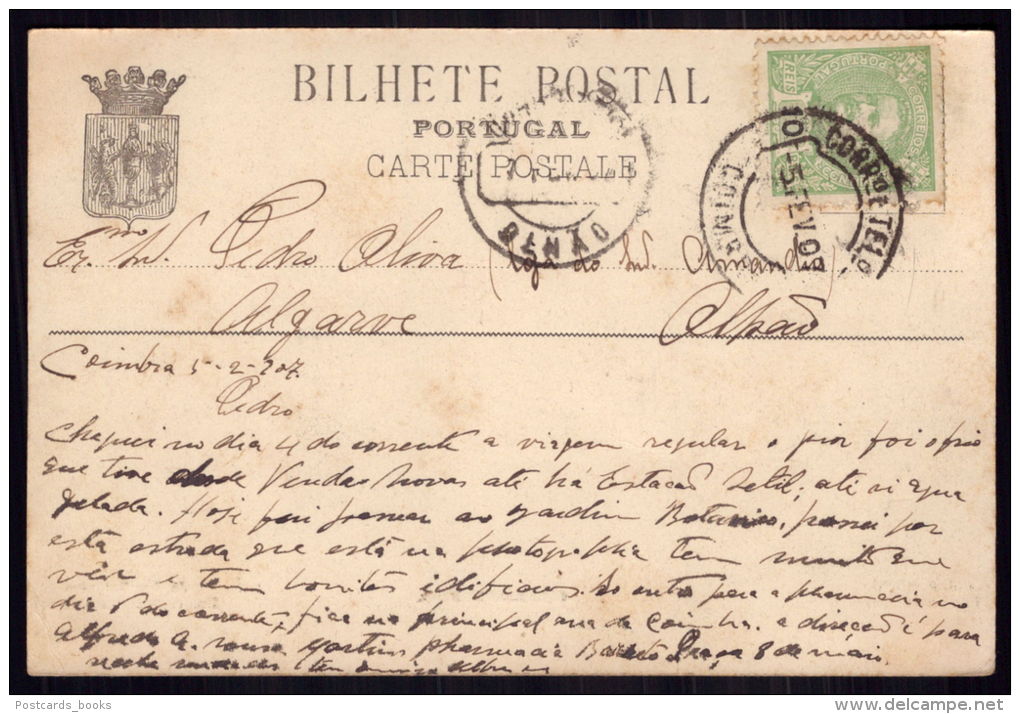 BILHETE POSTAL
PORTUGAL
CARTE POSTALE
REIS
PORTUGAL
CORREIOS
10
CORRO E TELO
5 FEV 07
Exmo Sr. Pedro Oliva (Loja do Sr. Amandio
Algarve
Coimbra 5-2-907
Pedro
Cheguei no dia 4 do corrente a viagem regular o pior foi o frio
que tive desde Vendas Novas até há Estacaõ Setil; até vi agua
gelada. Hoje fui passear ao Jardim Botanico, passei por
está estrada que está na photographia tem muito que
ver e tem bonitos idificios. Eu entro para a pharmacia no
dia 6 do corrente, fica na principal rua de Coimbra. a direcaõ é para
Alfredo A. Martins pharmacia Praça 8 de maio
Postcards_books
delcampe.net